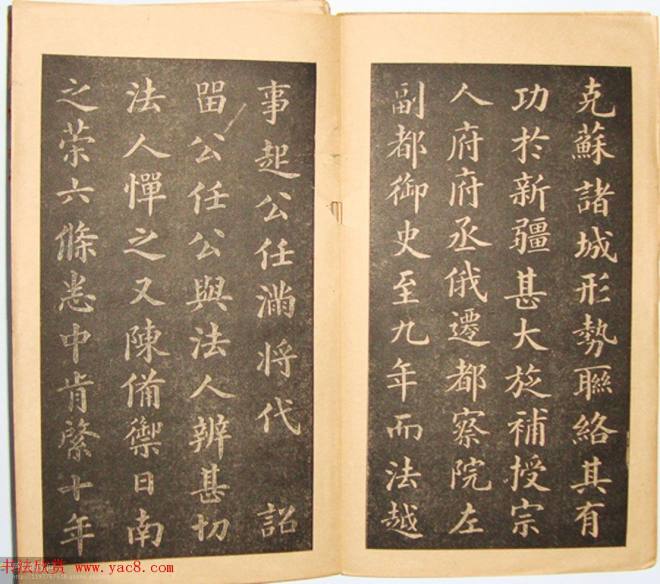 克蘇諸城形勢聯絡其有
功於新疆甚大旋補授宗
人府府丞俄遷都察院左
副都御史至九年而法越
事起公任滿將代　詔
留公任公與法人辨甚切
法人憚之又陳備禦日南
之荣六條悉中肯綮十年
书法欣赏 www.yac8.com